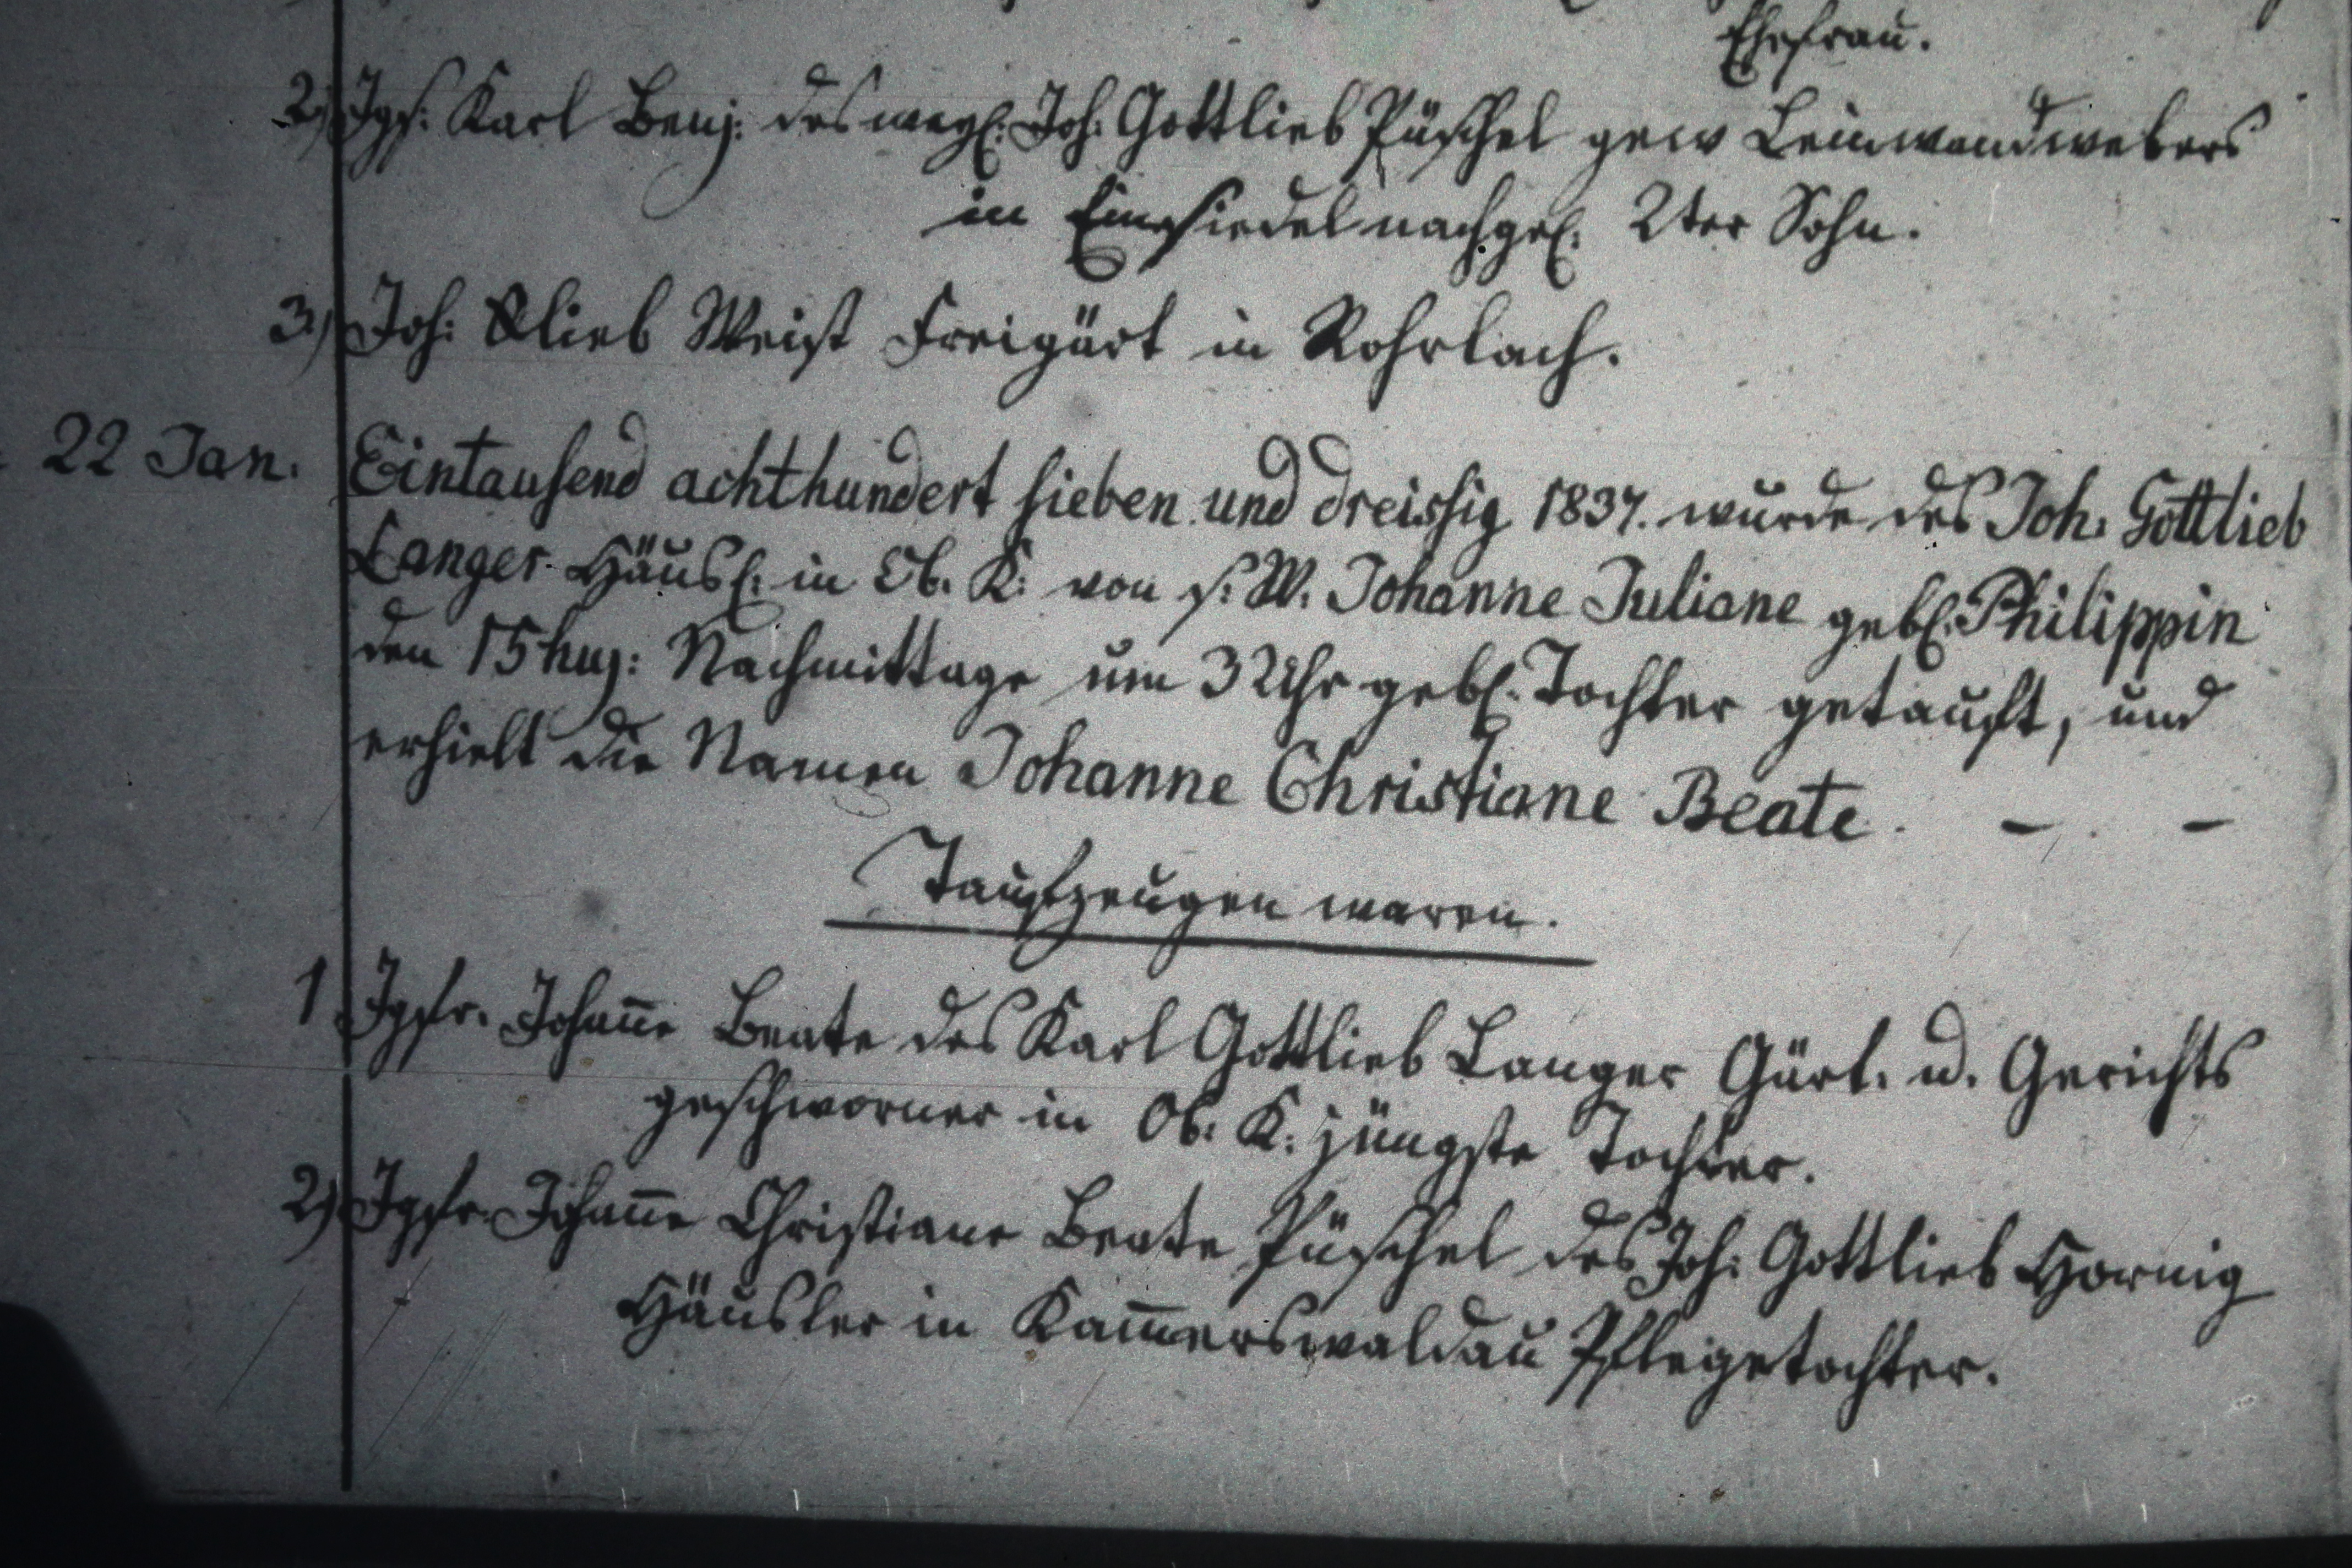 Ehefrau.
2.) Jgs. Karl Benj. des weyl. Joh. Gottlieb Püschel gew Leinwandwebers
in Einsiedel nachgel. 2ter Sohn.
3.) Joh: Glieb Weist Freigärt in Rohrlach.
22 Jan. Eintausend achthundert sieben und dreissig 1837. wurde des Joh. Gottlieb
Langer Häusl. in Ob. K: von s. W. Johanne Juliane gebl. Philippin
den 15 huj: Nachmittage um 3 Uhr gebl. Tochter getauft, und
erhielt die Namen Johanne Christiane Beate. – . –
Taufzeugen waren.
1 Jgfr. Johan̄e Beate des Karl Gottlieb Langer Gärt. u. Gerichts
geschworner in Ob. K: jüngste Tochter.
2) Jgfr. Johan̄e Christiane Beate Püschel des Joh: Gottlieb Hornig
Häusler in Kam̄erswaldau Pflegetochter.